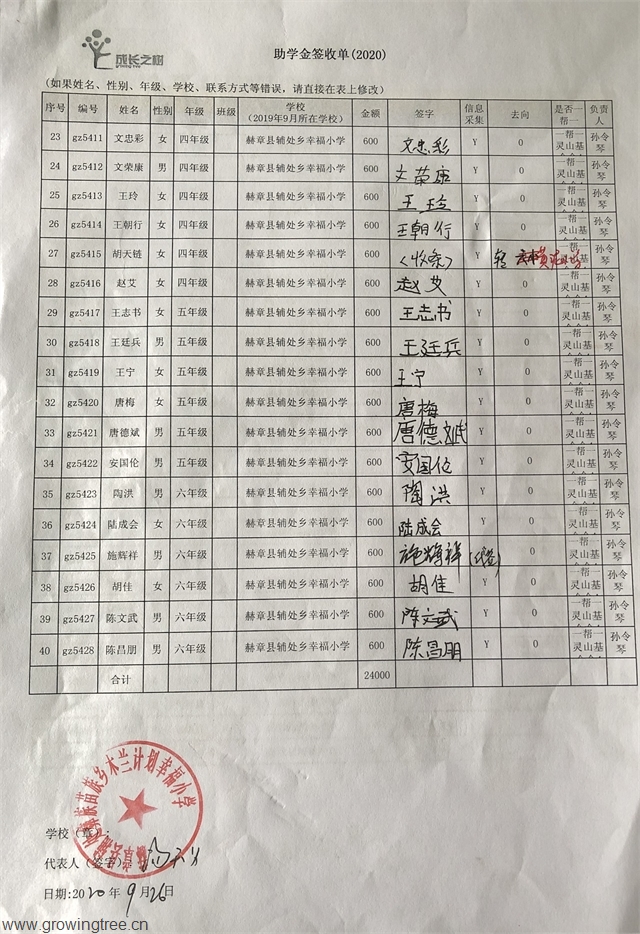 成长之树
助学金签收单(2020)
(如果姓名、性别、年级、学校、联系方式等错误，请直接在表上修改)
序号 编号 姓名 性别 年级 班级 学校（2019年9月所在学校） 金额 签字 信息采集 去向 是否一帮一 负责人
23 gz5411 文忠彩 女 四年级 赫章县辅处乡幸福小学 600 文忠彩 Y 0 一帮一 灵山基 孙令琴
24 gz5412 文荣康 男 四年级 赫章县辅处乡幸福小学 600 文荣康 Y 0 一帮一 灵山基 孙令琴
25 gz5413 王玲 女 四年级 赫章县辅处乡幸福小学 600 王玲 Y 0 一帮一 灵山基 孙令琴
26 gz5414 王朝行 女 四年级 赫章县辅处乡幸福小学 600 王朝行 Y 0 一帮一 灵山基 孙令琴
27 gz5415 胡天链 女 四年级 赫章县辅处乡幸福小学 600 〈收条〉 Y 转 一帮一 灵山基 孙令琴
28 gz5416 赵艾 女 四年级 赫章县辅处乡幸福小学 600 赵艾 Y 0 一帮一 灵山基 孙令琴
29 gz5417 王志书 女 五年级 赫章县辅处乡幸福小学 600 王志书 Y 0 一帮一 灵山基 孙令琴
30 gz5418 王廷兵 男 五年级 赫章县辅处乡幸福小学 600 王廷兵 Y 0 一帮一 灵山基 孙令琴
31 gz5419 王宁 女 五年级 赫章县辅处乡幸福小学 600 王宁 Y 0 一帮一 灵山基 孙令琴
32 gz5420 唐梅 女 五年级 赫章县辅处乡幸福小学 600 唐梅 Y 0 一帮一 灵山基 孙令琴
33 gz5421 唐德斌 男 五年级 赫章县辅处乡幸福小学 600 唐德斌 Y 0 一帮一 灵山基 孙令琴
34 gz5422 安国伦 男 五年级 赫章县辅处乡幸福小学 600 安国伦 Y 0 一帮一 灵山基 孙令琴
35 gz5423 陶洪 男 六年级 赫章县辅处乡幸福小学 600 陶洪 Y 0 一帮一 灵山基 孙令琴
36 gz5424 陆成会 女 六年级 赫章县辅处乡幸福小学 600 陆成会 Y 0 一帮一 灵山基 孙令琴
37 gz5425 施辉祥 男 六年级 赫章县辅处乡幸福小学 600 施辉祥(代签) Y 0 一帮一 灵山基 孙令琴
38 gz5426 胡佳 女 六年级 赫章县辅处乡幸福小学 600 胡佳 Y 0 一帮一 灵山基 孙令琴
39 gz5427 陈文武 男 六年级 赫章县辅处乡幸福小学 600 陈文武 Y 0 一帮一 灵山基 孙令琴
40 gz5428 陈昌朋 男 六年级 赫章县辅处乡幸福小学 600 陈昌朋 Y 0 一帮一 灵山基 孙令琴
合计 24000
族苗族乡木兰计划幸福小学
学校（章）：
代表人（签字）：
日期:2020年9月26日
www.growingtree.cn